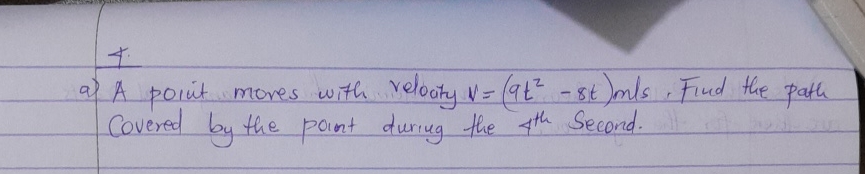 4.
a) A point moves with velocity V = (9t² - 8t)m/s. Find the path
Covered by the point during the 4th Second.